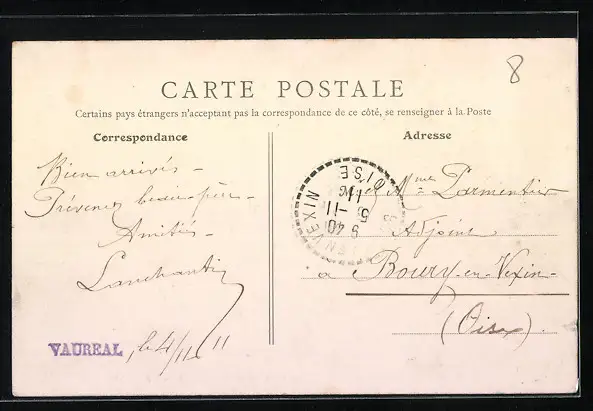 8
CARTE POSTALE
Certains pays étrangers n'acceptant pas la correspondance de ce côté, se renseigner à la Poste
Correspondance
Adresse
Bien arrivés -
Prévenez beau-père -
Amitiés -
VAUREAL, le 4/11 11
OISE
9 40
5 - 11
11
EN VEXIN
Mme Parmentier
Adjoint
à Boury-en-Vexin -
(Oise).